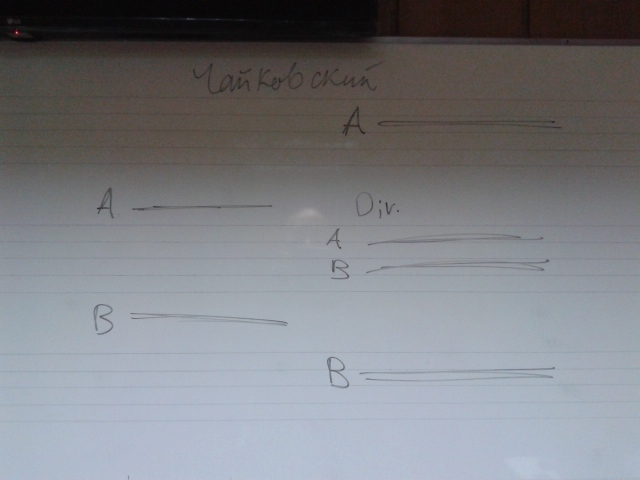 Чайковский
A
A
Div.
A
B
B
B